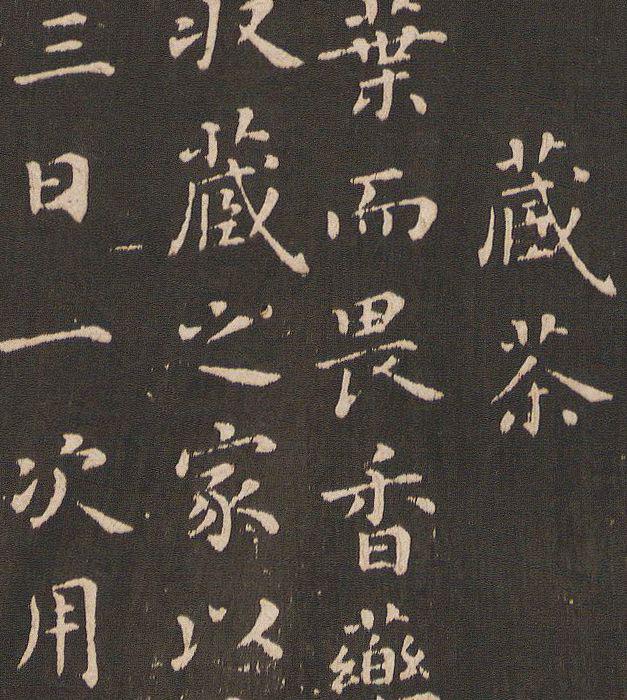 藏茶
葉而畏香藥
收藏之家以
三日一次用